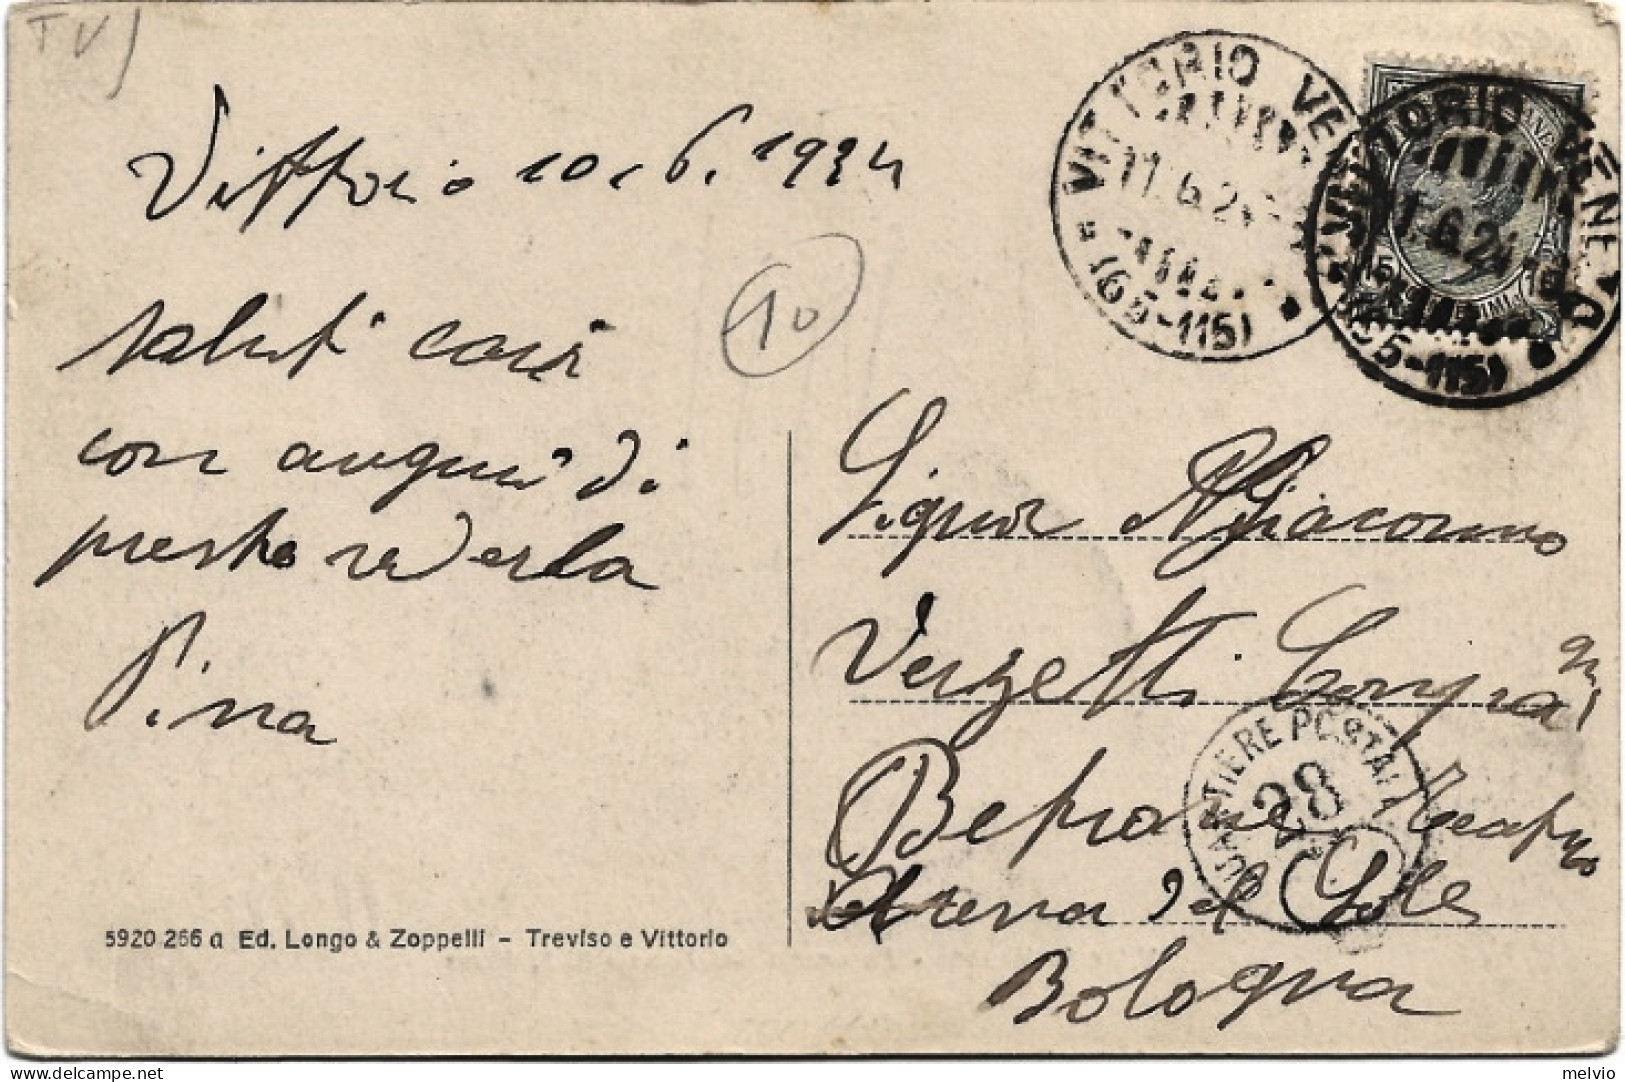 TV
Vittorio 10.6.1924
saluti cari
con auguri di
presto rivederla
Pina
10
VITTORIO VENETO
11.6.24
(65-115)
VITTORIO VENETO
11.6.24
(65-115)
15 15
Signor Giacomo
Verzetti
QUARTIERE POSTALE
28
Arena del Sole
Bologna
5920 266 a Ed. Longo & Zoppelli - Treviso e Vittorio
delcampe.net
melvio